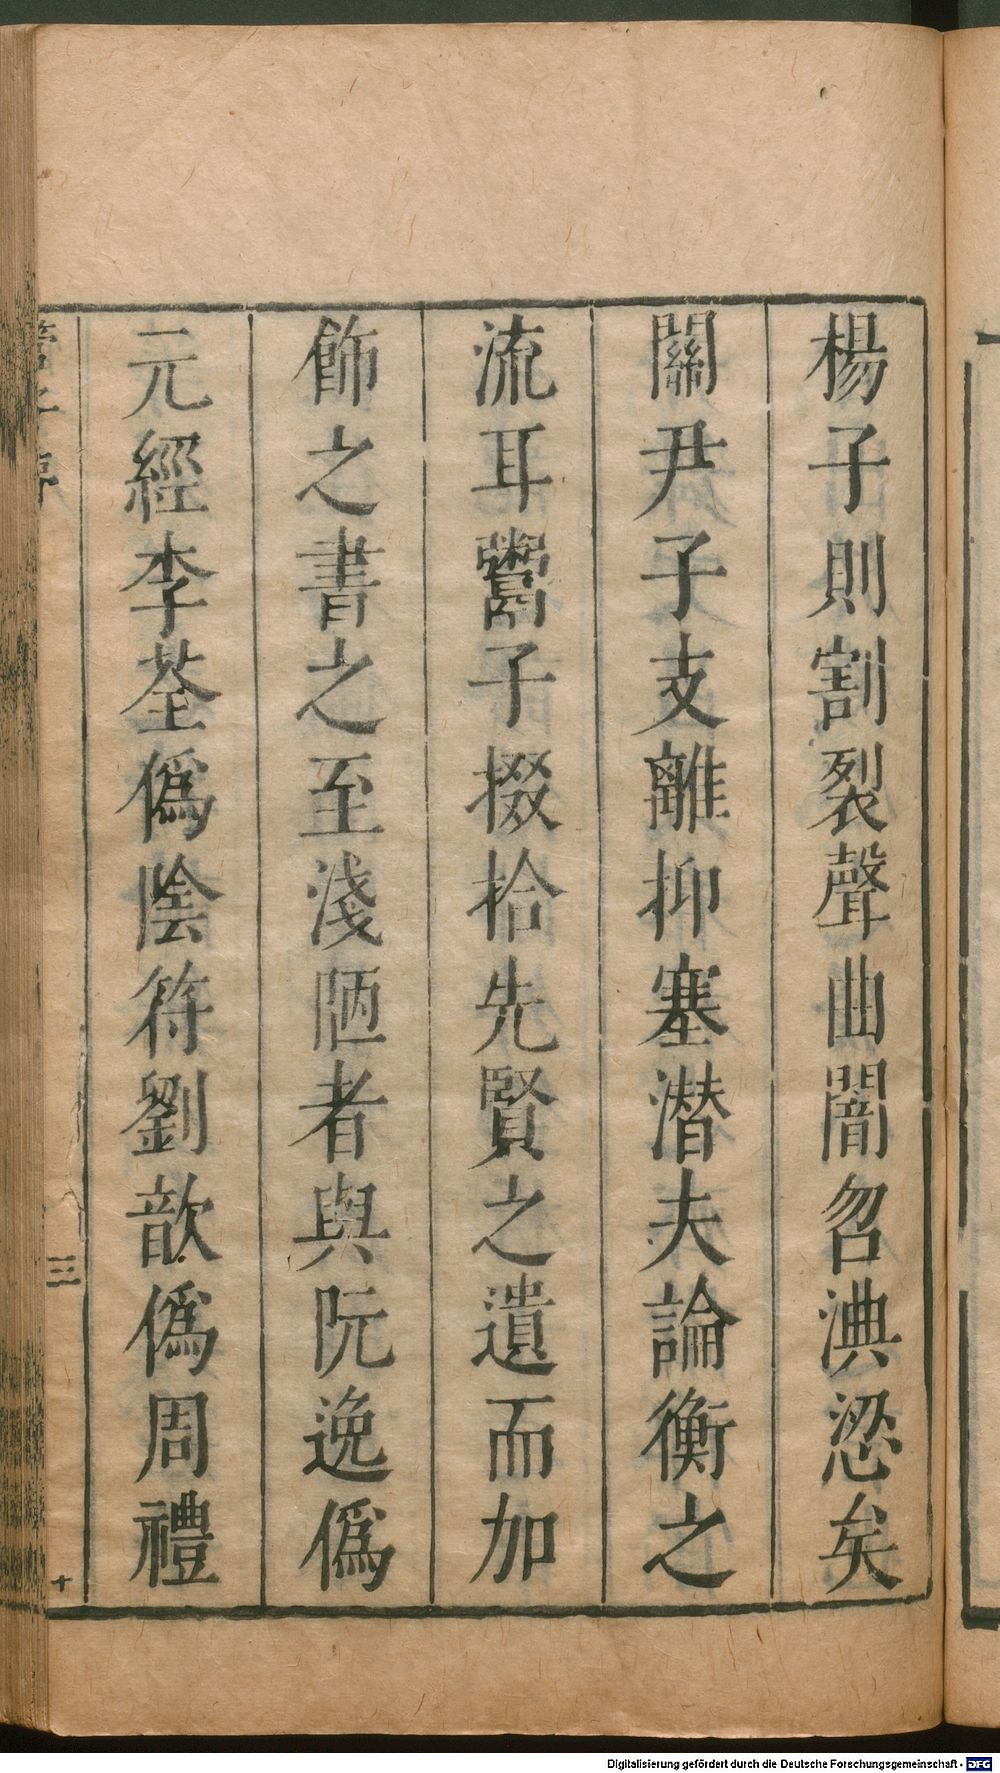 楊子則割裂聲曲闇曶淟涊矣
關尹子支離抑塞潛夫論衡之
流耳鬻子掇拾先賢之遺而加
飾之書之至淺陋者與阮逸僞
元經李荃僞陰符劉歆僞周禮
三
十
Digitalisierung gefördert durch die Deutsche Forschungsgemeinschaft - DFG